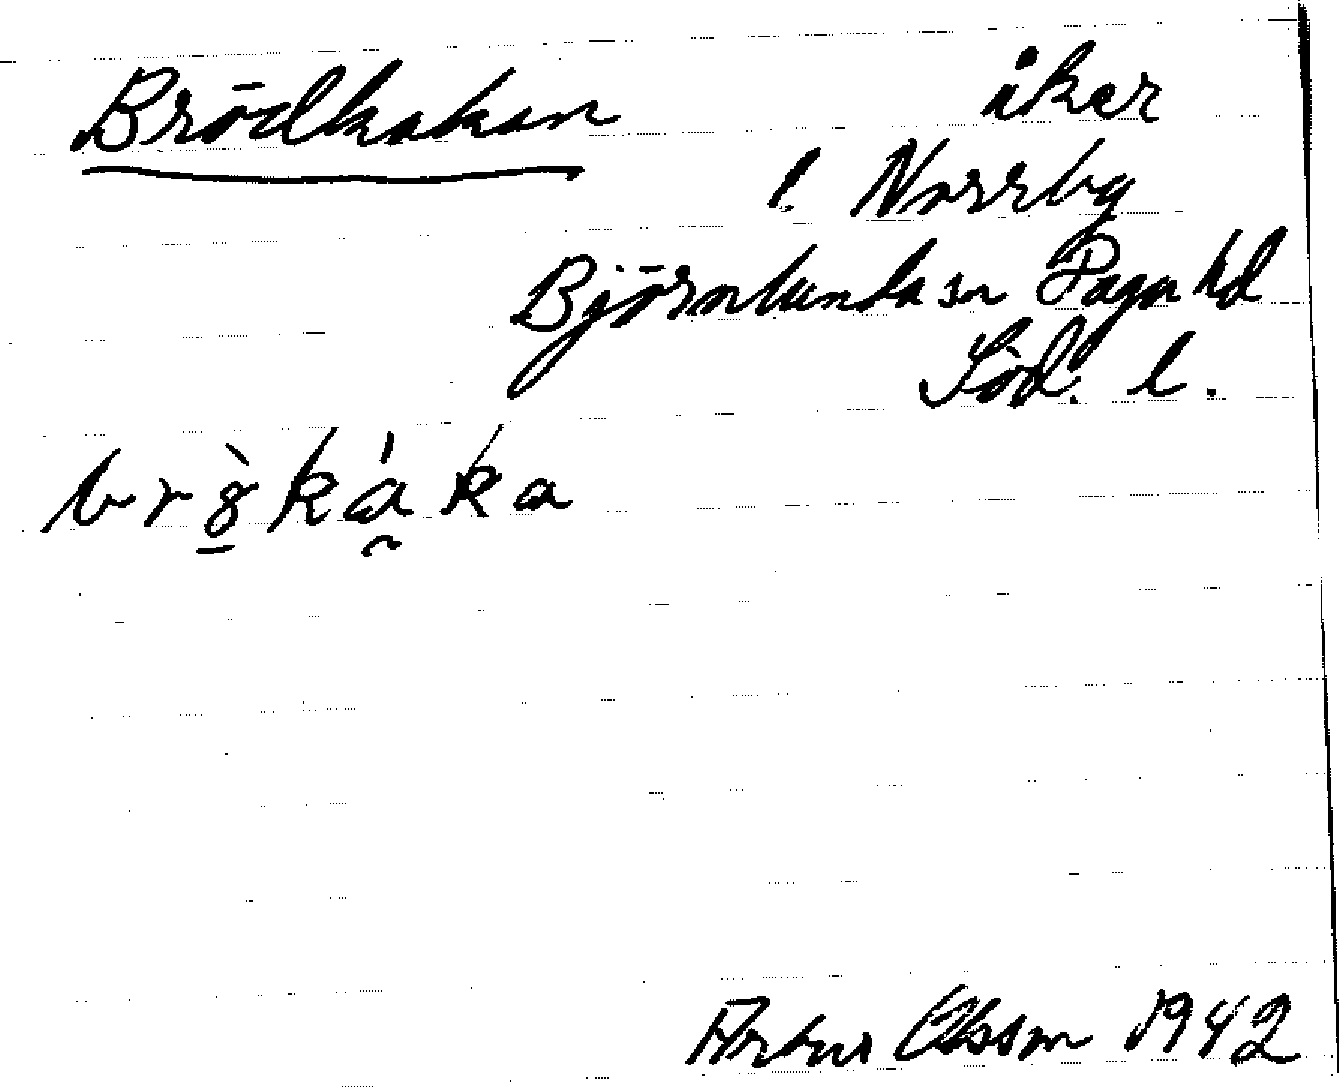 Brödkakan åker
l. Norrby
Björnlunda sn Daga hd
Söd. l.
brö̀káka
Artur Olsson 1942